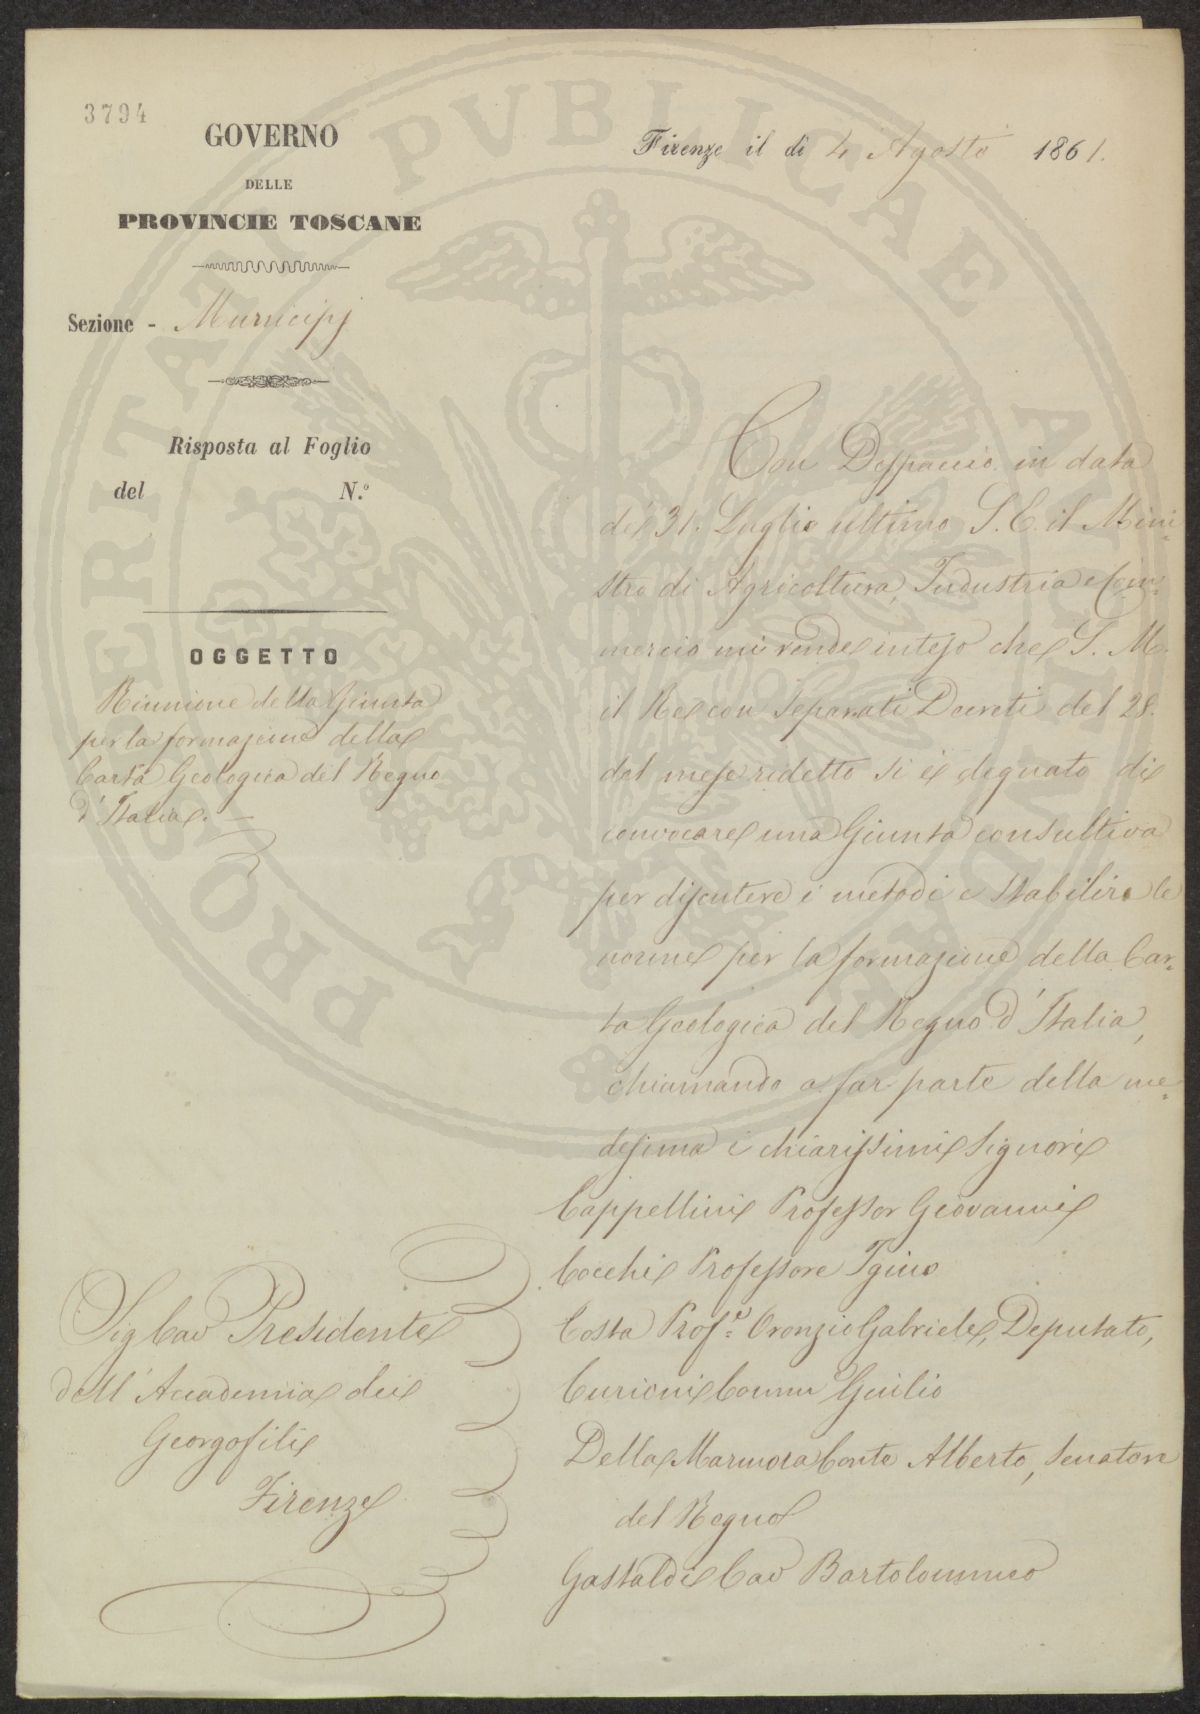 3794
GOVERNO
DELLE
PROVINCIE TOSCANE
Sezione - Municipj
Risposta al Foglio
del N.º
OGGETTO
Riunione della Giunta
per la formazione della
Carta Geologica del Regno
d'Italia. —
Firenze il dì 4 Agosto 1861.
Con Dispaccio in data
del 31. Luglio ultimo S. E. il Mini=
stro di Agricoltura, Industria e Com=
mercio mi rende inteso che S. M.
il Re con separati Decreti del 28.
del mese ridetto si è degnato di
convocare una Giunta consultiva
per discutere i metodi e stabilire le
norme per la formazione della Car=
ta Geologica del Regno d'Italia,
chiamando a far parte della me=
desima i chiarissimi Signori
Cappellini Professor Giovanni
Cocchi Professore Igino
Costa Prof.e Oronzio Gabriele, Deputato,
Curioni Comm Giulio
Della Marmora Conte Alberto, Senatore
del Regno
Gastaldi Cav Bartolommeo
Sig Cav Presidente
dell'Accademia dei
Georgofili
Firenze
PROSPERITATI PVBLICAE AVGENDAE